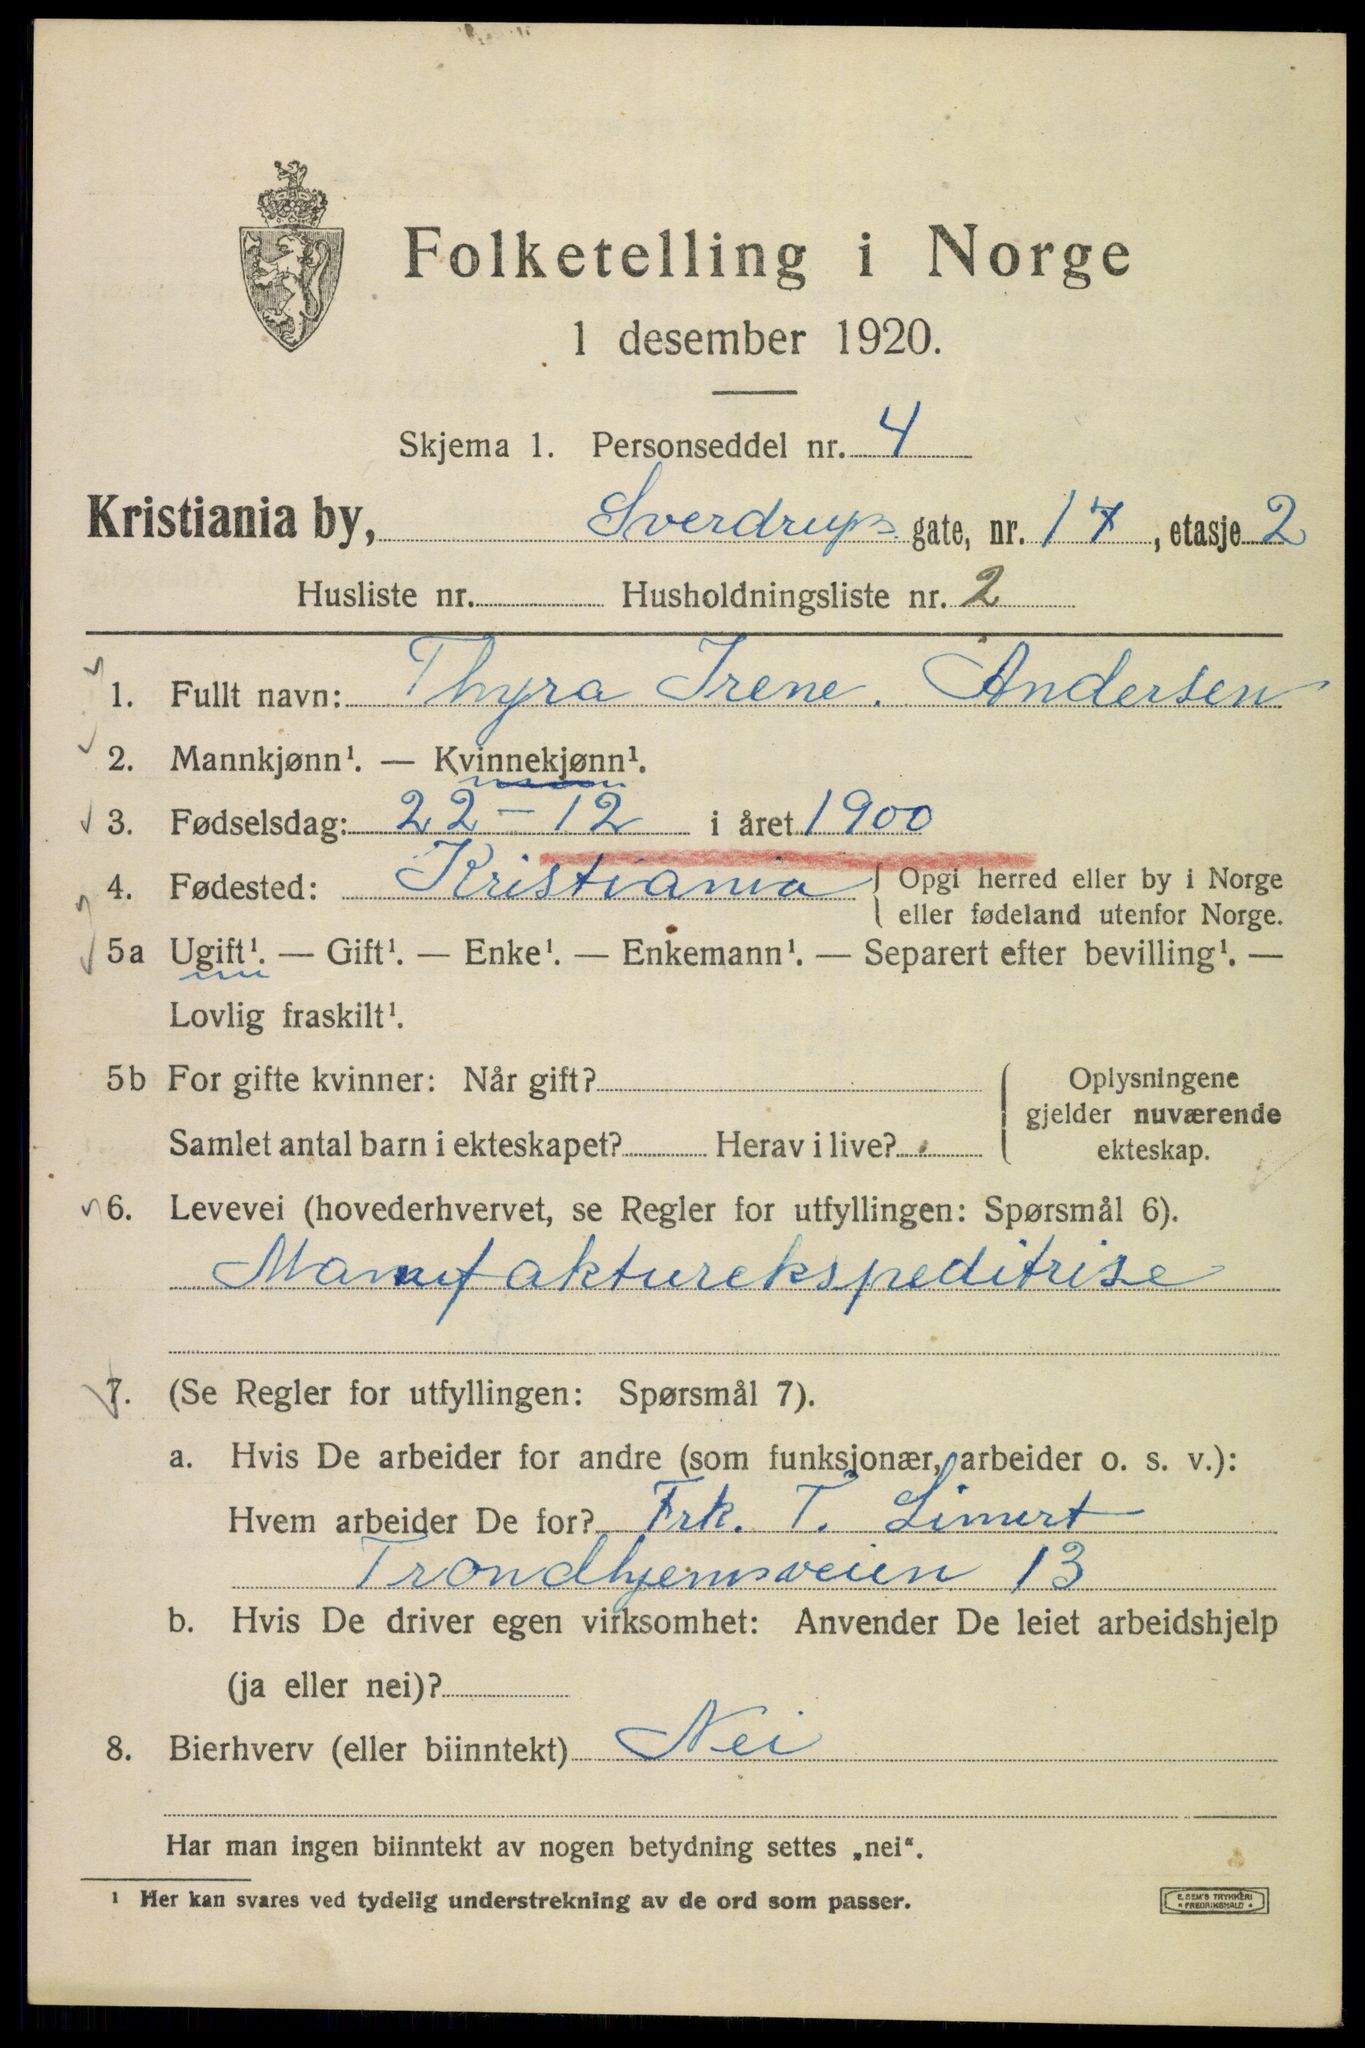 Folketelling i Norge
1 desember 1920.
Skjema 1. Personseddel nr. 4
Kristiania by, Sverdrups gate, nr. 17, etasje 2
Husliste nr. Husholdningsliste nr. 2
1. Fullt navn: Thyra Irene. Andersen
2. Mannkjønn¹. — Kvinnekjønn¹.
3. Fødselsdag: 22 – 12 i året 1900
4. Fødested: Kristiania { Opgi herred eller by i Norge
eller fødeland utenfor Norge.
5a Ugift¹. — Gift¹. — Enke¹. — Enkemann¹. — Separert efter bevilling¹. —
Lovlig fraskilt¹.
5b For gifte kvinner: Når gift? { Oplysningene
gjelder nuværende
Samlet antal barn i ekteskapet? Herav i live? ekteskap.
6. Levevei (hovederhvervet, se Regler for utfyllingen: Spørsmål 6).
Manufakturekspeditrise
7. (Se Regler for utfyllingen: Spørsmål 7).
a. Hvis De arbeider for andre (som funksjonær, arbeider o. s. v.):
Hvem arbeider De for? Frk. T. Limert
Trondhjemsveien 13
b. Hvis De driver egen virksomhet: Anvender De leiet arbeidshjelp
(ja eller nei)?
8. Bierhverv (eller biinntekt) Nei
Har man ingen biinntekt av nogen betydning settes „nei“.
¹ Her kan svares ved tydelig understrekning av de ord som passer.
E. SEM'S TRYKKERI
FREDRIKSHALD